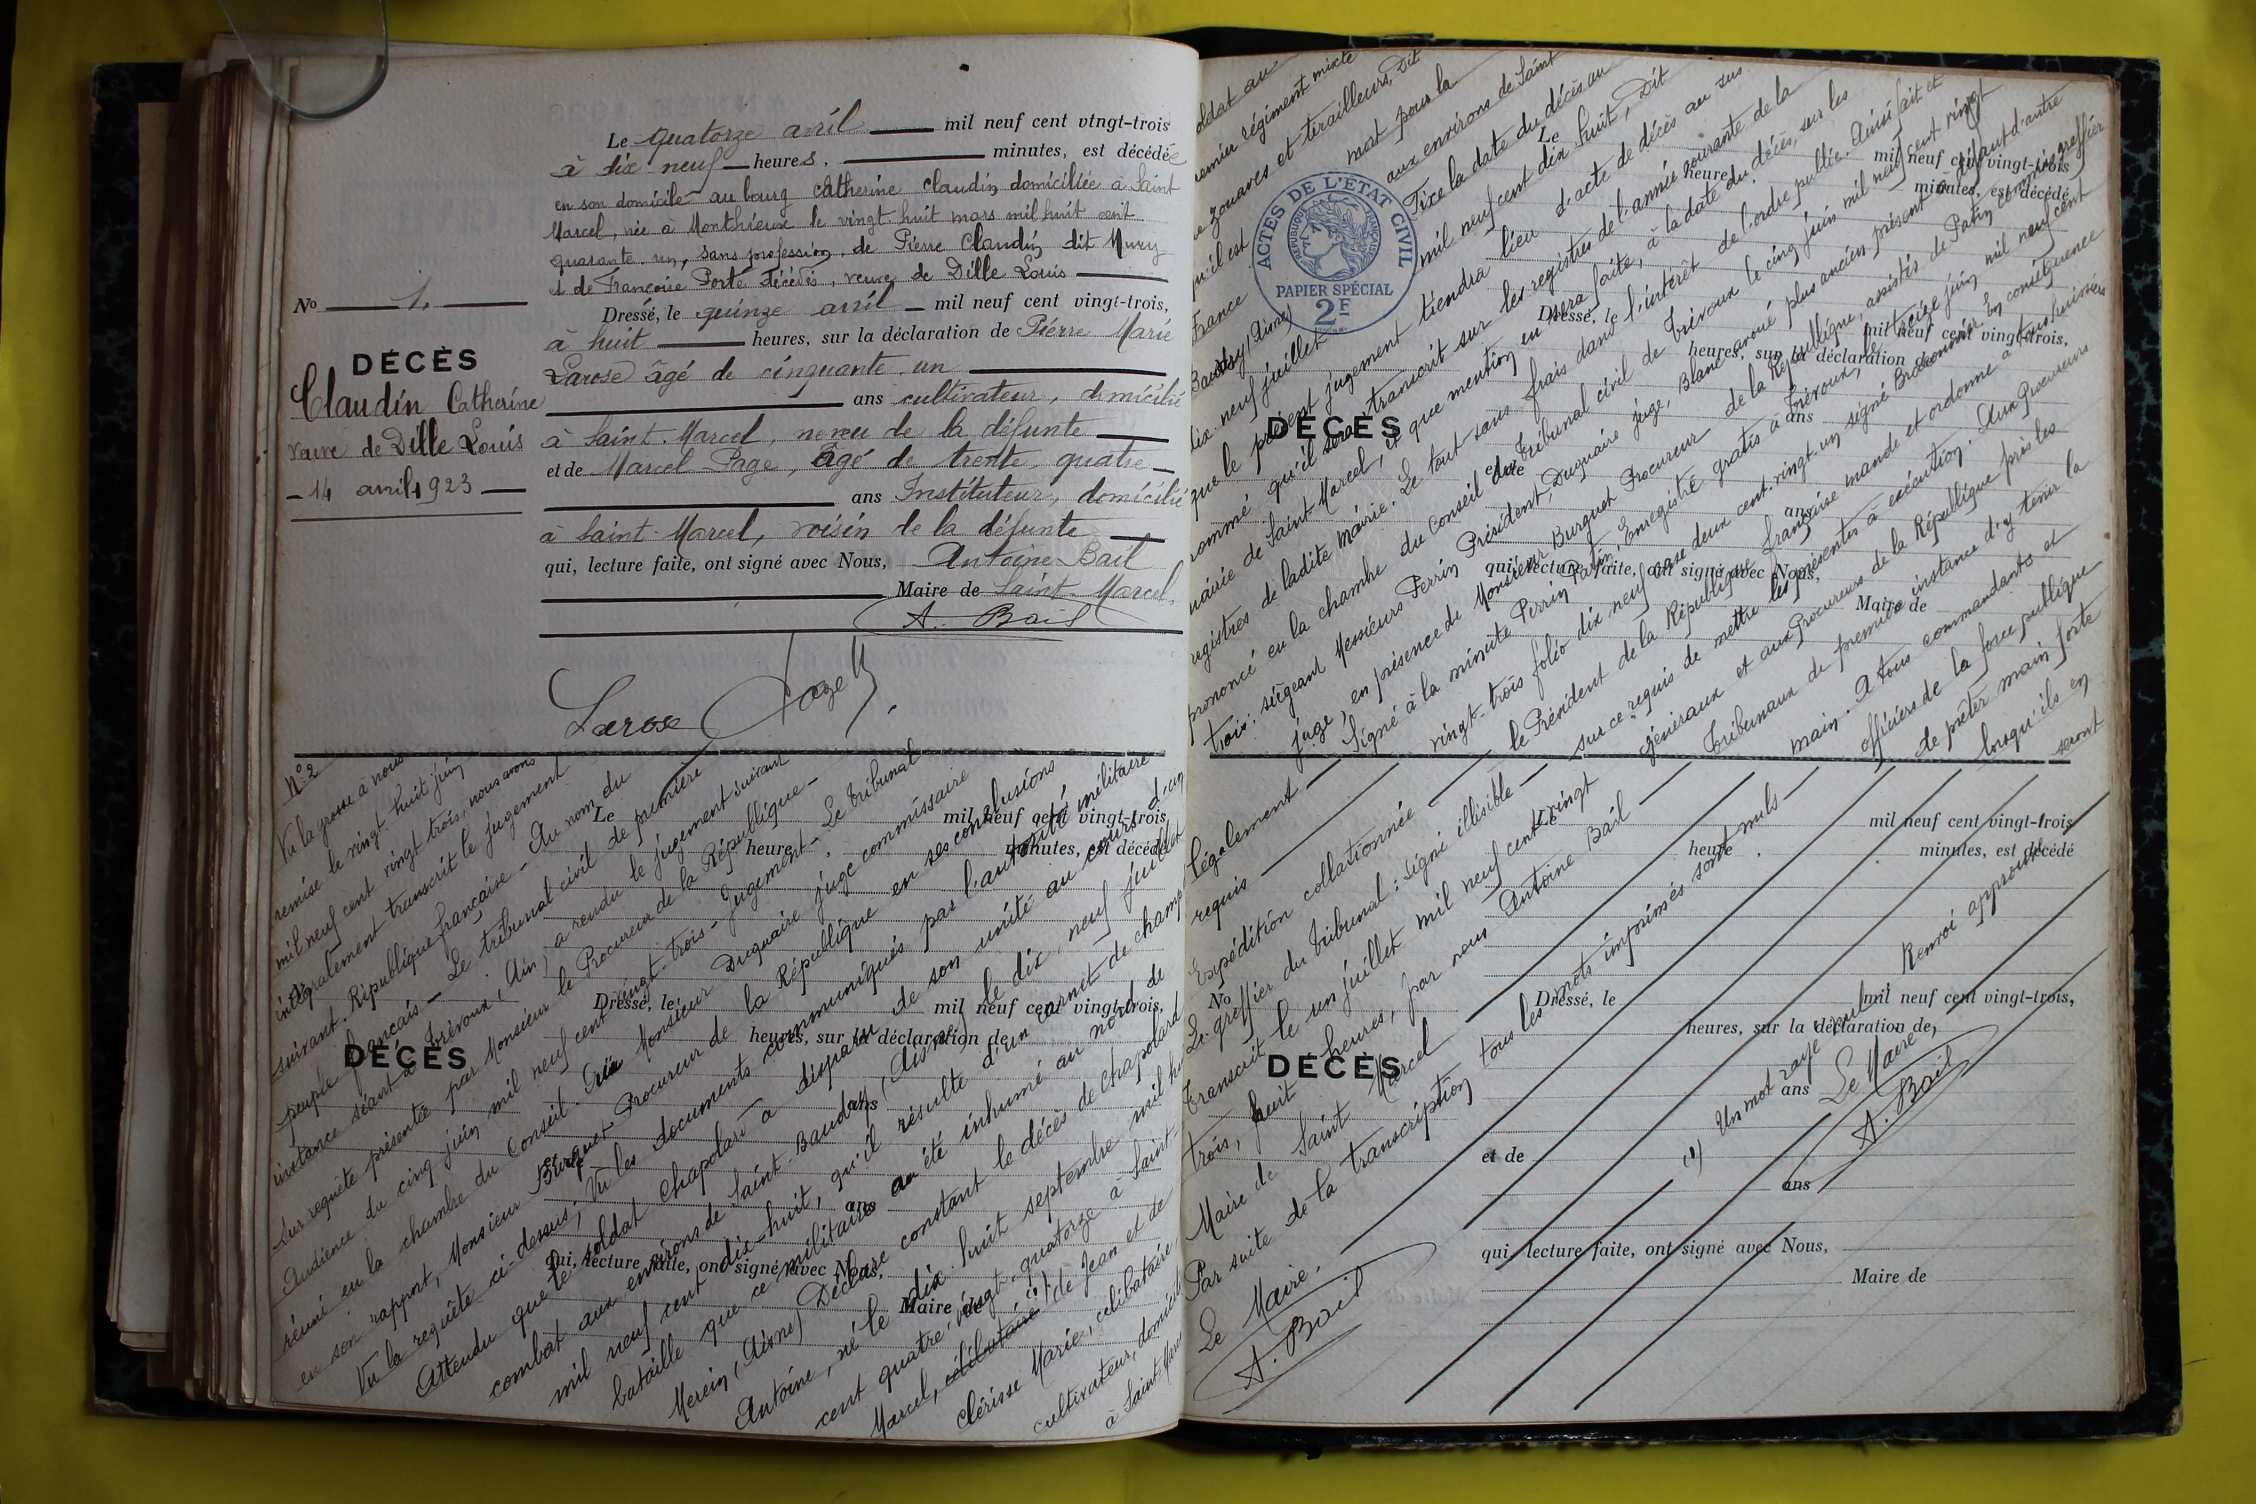 Le quatorze avril mil neuf cent vingt-trois
à dix neuf heures, minutes, est décédée
en son domicile au bourg Catherine Claudin domiciliée à Saint
Marcel, née à Monthieux le vingt huit mars mil huit cent
quarante un, sans profession, de Pierre Claudin dit Mury
et de Françoise Porte décédés, veuve de Dille Louis
No 1.
Dressé, le quinze avril mil neuf cent vingt-trois,
à huit heures, sur la déclaration de Pierre Marie
DÉCÈS
Larose âgé de cinquante un
Claudin Catherine
ans cultivateur, domicilié
veuve de Dille Louis
à Saint-Marcel, neveu de la défunte
et de Marcel Page, âgé de trente quatre
14 avril 1923
ans Instituteur, domicilié
à Saint-Marcel, voisin de la défunte
qui, lecture faite, ont signé avec Nous, Antoine Bail
Maire de Saint-Marcel.
A. Bail
Larose
No 2
Vu la grosse à nous
remise le vingt huit juin
mil neuf cent vingt trois, nous avons
intégralement transcrit le jugement
suivant. République française - Au nom du
peuple français - Le tribunal civil de première
instance séant à Trévoux (Ain) a rendu le jugement suivant
Sur requête présentée par Monsieur le Procureur de la République -
Audience du cinq juin mil neuf cent vingt-trois - Jugement - Le Tribunal
réuni en la chambre du Conseil. Ouï Monsieur Duquaire juge commissaire
en son rapport, Monsieur Burquet Procureur de la République en ses conclusions
Vu la requête ci-dessus, Vu les documents communiqués par l'autorité militaire
Attendu que le soldat Chapolard a disparu de son unité au cours d'un
combat aux environs de Saint-Baudry (Aisne) le dix neuf juillet
mil neuf cent dix-huit, qu'il résulte d'un carnet de champ
bataille que ce militaire a été inhumé au nord de
Mercin (Aisne) Déclare constant le décès de Chapolard
Antoine, né le dix huit septembre mil hu
cent quatre vingt quatorze à Saint
Marcel, célibataire (1) de Jean et de
Clérisse Marie, célibataire
cultivateur, domicilié
à Saint-Marcel
Le mil neuf cent vingt-trois,
heure, minutes, est décédé
Dressé, le mil neuf cent vingt-trois,
heures, sur la déclaration de
DÉCÈS
ans
et de
ans
qui, lecture faite, ont signé avec Nous,
Maire de
soldat au
premier régiment mixte
de zouaves et tirailleurs, Dit
qu'il est mort pour la
France aux environs de Saint
Baudry (Aisne) Fixe la date du décès au
dix neuf juillet mil neuf cent dix huit, Dit
que le présent jugement tiendra lieu d'acte de décès au sus
nommé qu'il sera transcrit sur les registres de l'année courante de la
mairie de Saint Marcel, et que mention en sera faite, à la date du décès, sur les
registres de ladite mairie. Le tout sans frais dans l'intérêt de l'ordre public. Ainsi fait et
prononcé en la chambre du Conseil du Tribunal civil de Trévoux le cinq juin mil neuf cent vingt
trois: siégeant Messieurs Perrin Président, Duquaire juge, Blanc avoué plus ancien présent à défaut d'autre
juge, en présence de Monsieur Burquet Procureur de la République, assistés de Patin commis greffier
Signé à la minute Perrin Patin. Enregistré gratis à Trévoux, le treize juin mil neuf cent
vingt-trois folio dix neuf case deux cent vingt-un signé En conséquence
le Président de la République française mande et ordonne à tous huissiers
sur ce requis de mettre les présentes à exécution. Aux Procureurs
généraux et aux Procureurs de la République près les
Tribunaux de première instance d'y tenir la
main. A tous commandants et
officiers de la force publique
de prêter main forte
lorsqu'ils en
seront
légalement
requis
Expédition collationnée
Le greffier du tribunal: signé illisible
Transcrit le un juillet mil neuf cent vingt
trois, huit heures, par nous Antoine Bail
Maire de Saint Marcel
Par suite de la transcription tous les mots imprimés sont nuls
Le Maire.
A. Bail
(1) Un mot rayé nul. Renvoi approuvé
Le Maire,
A. Bail
ACTES DE L'ÉTAT CIVIL
RÉPUBLIQUE FRANÇAISE
PAPIER SPÉCIAL
2F
Le mil neuf cent vingt-trois
heure, minutes, est décédé
Dressé, le mil neuf cent vingt-trois,
heures, sur la déclaration de
DÉCÈS
ans
et de
ans
qui, lecture faite, ont signé avec Nous,
Maire de
Le mil neuf cent vingt-trois
heure, minutes, est décédé
No
Dressé, le mil neuf cent vingt-trois,
heures, sur la déclaration de
DÉCÈS
ans
et de
ans
qui, lecture faite, ont signé avec Nous,
Maire de